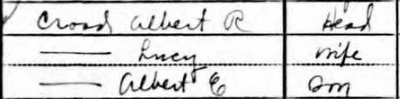 Croad Albert R Head
—— Lucy Wife
—— Albert E Son